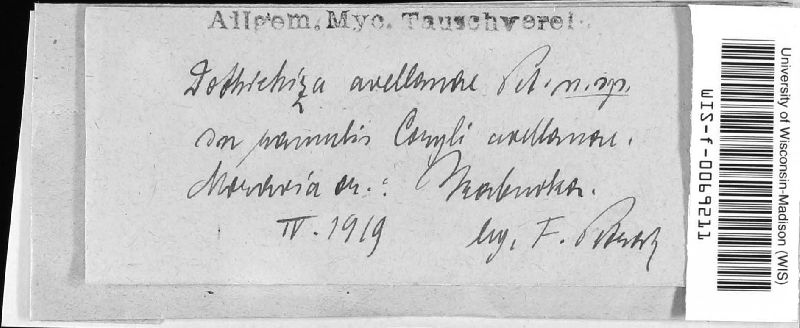 Allgem. Myc. Tauschverein
Dothichiza avellanae Pet. n. sp.
in ramulis Coryli avellanae.
Moravia or.: Hrabuvka.
IV. 1919 leg. F. Petrak
University of Wisconsin-Madison (WIS)
WIS-f-0069211